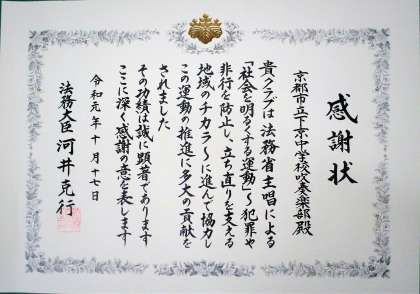 感謝状
京都市立下京中学校吹奏楽部殿
貴クラブは法務省主唱による
「社会を明るくする運動」～犯罪や
非行を防止し、立ち直りを支える
地域のチカラ～に進んで協力し
この運動の推進に多大の貢献を
されました
その功績は誠に顕著であります
ここに深く感謝の意を表します
令和元年十月十七日
法務大臣 河井克行